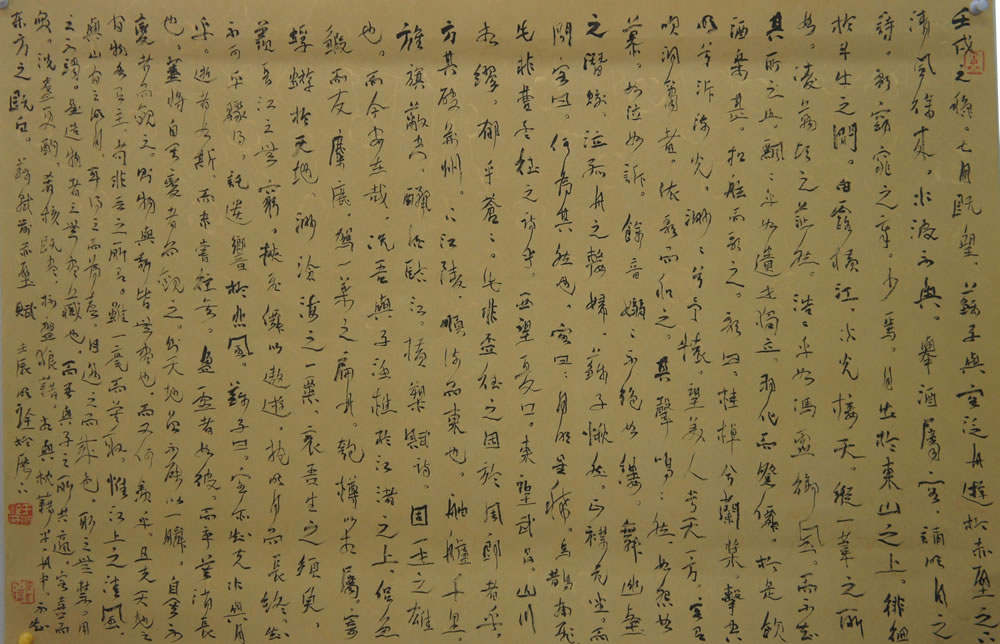 壬戌之秋。七月既望。蘇子與客泛舟遊於赤壁之下。
清風徐來。水波不興。舉酒屬客。誦明月之
詩。歌窈窕之章。少焉。月出於東山之上。徘徊
於斗牛之間。白露橫江。水光接天。縱一葦之所
如。凌萬頃之茫然。浩浩乎如馮虛御風。而不知
其所止。飄飄乎如遺世獨立。羽化而登僊。於是飲
酒樂甚。扣舷而歌之。歌曰。桂棹兮蘭槳。擊空
明兮泝流光。渺渺兮予懷。望美人兮天一方。客有
吹洞簫者。依歌而和之。其聲嗚嗚然如怨如
慕。如泣如訴。餘音嫋嫋不絕如縷。舞幽壑
之潛蛟。泣孤舟之嫠婦。蘇子愀然。正襟危坐。而
問客曰。何為其然也。客曰。月明星稀。烏鵲南飛
此非曹孟德之詩乎。西望夏口。東望武昌。山川
相繆。郁乎蒼蒼。此非孟德之困於周郎者乎。
方其破荊州。下江陵。順流而東也。舳艫千里。
旌旗蔽空。釃酒臨江。橫槊賦詩。固一世之雄
也。而今安在哉。況吾與子漁樵於江渚之上。侶魚
蝦而友麋鹿。駕一葉之扁舟。匏樽以相屬。寄
蜉蝣於天地。渺滄海之一粟。哀吾生之須臾。
羨長江之無窮。挾飛僊以遨遊。抱明月而長終。知
不可乎驟得。託遺響於悲風。蘇子曰。客亦知夫水與月
乎。逝者如斯。而未嘗往也。盈虛者如彼。而卒莫消長
也。蓋將自其變者而觀之。則天地曾不能以一瞬。自其不
變者而觀之。則物與我皆無盡也。而又何羨乎。且夫天地之
間物各有主。苟非吾之所有。雖一毫而莫取。惟江上之清風。
與山間之明月。耳得之而為聲。目遇之而成色。取之無禁。用
之不竭。是造物者之無盡藏也。而吾與子之所共適。客喜而
笑。洗盞更酌。肴核既盡。杯盤狼藉。相與枕藉乎舟中。不知
東方之既白。蘇軾前赤壁賦 壬辰